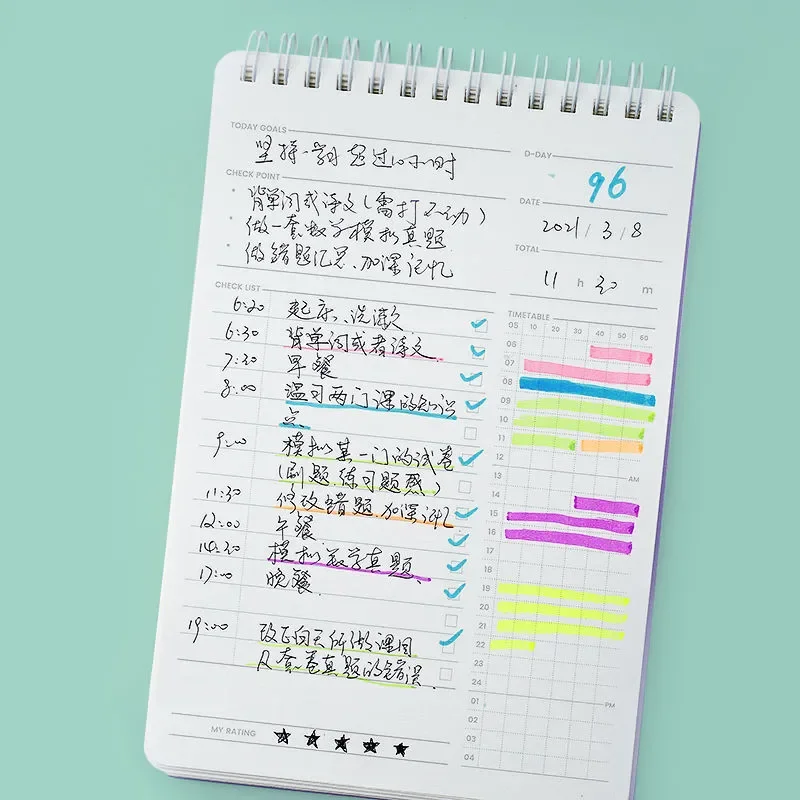 TODAY GOALS
坚持学习超过10小时
D-DAY
96
CHECK POINT
背单词或课文(需打不动)
做一套数学模拟真题
做错题汇总、加深记忆
DATE
2021/3/8
TOTAL
11 h 30 m
CHECK LIST
6:20 起床、洗漱
6:30 背单词或者课文
7:30 早餐
8:00 温习两门课的知识
点
9:00 模拟某一门的试卷
(刷题、练习题感)
11:30 修改错题、加深记忆
12:00 午餐
14:30 模拟数学真题、
17:00 晚餐.
19:00 改正白天所做课目
及套卷真题的错误.
TIMETABLE
05 10 20 30 40 50 60
06
07
08
09
10
11
12
AM
13
14
15
16
17
18
19
20
21
22
23
24
PM
01
02
03
04
MY RATING ★ ★ ★ ★ ★